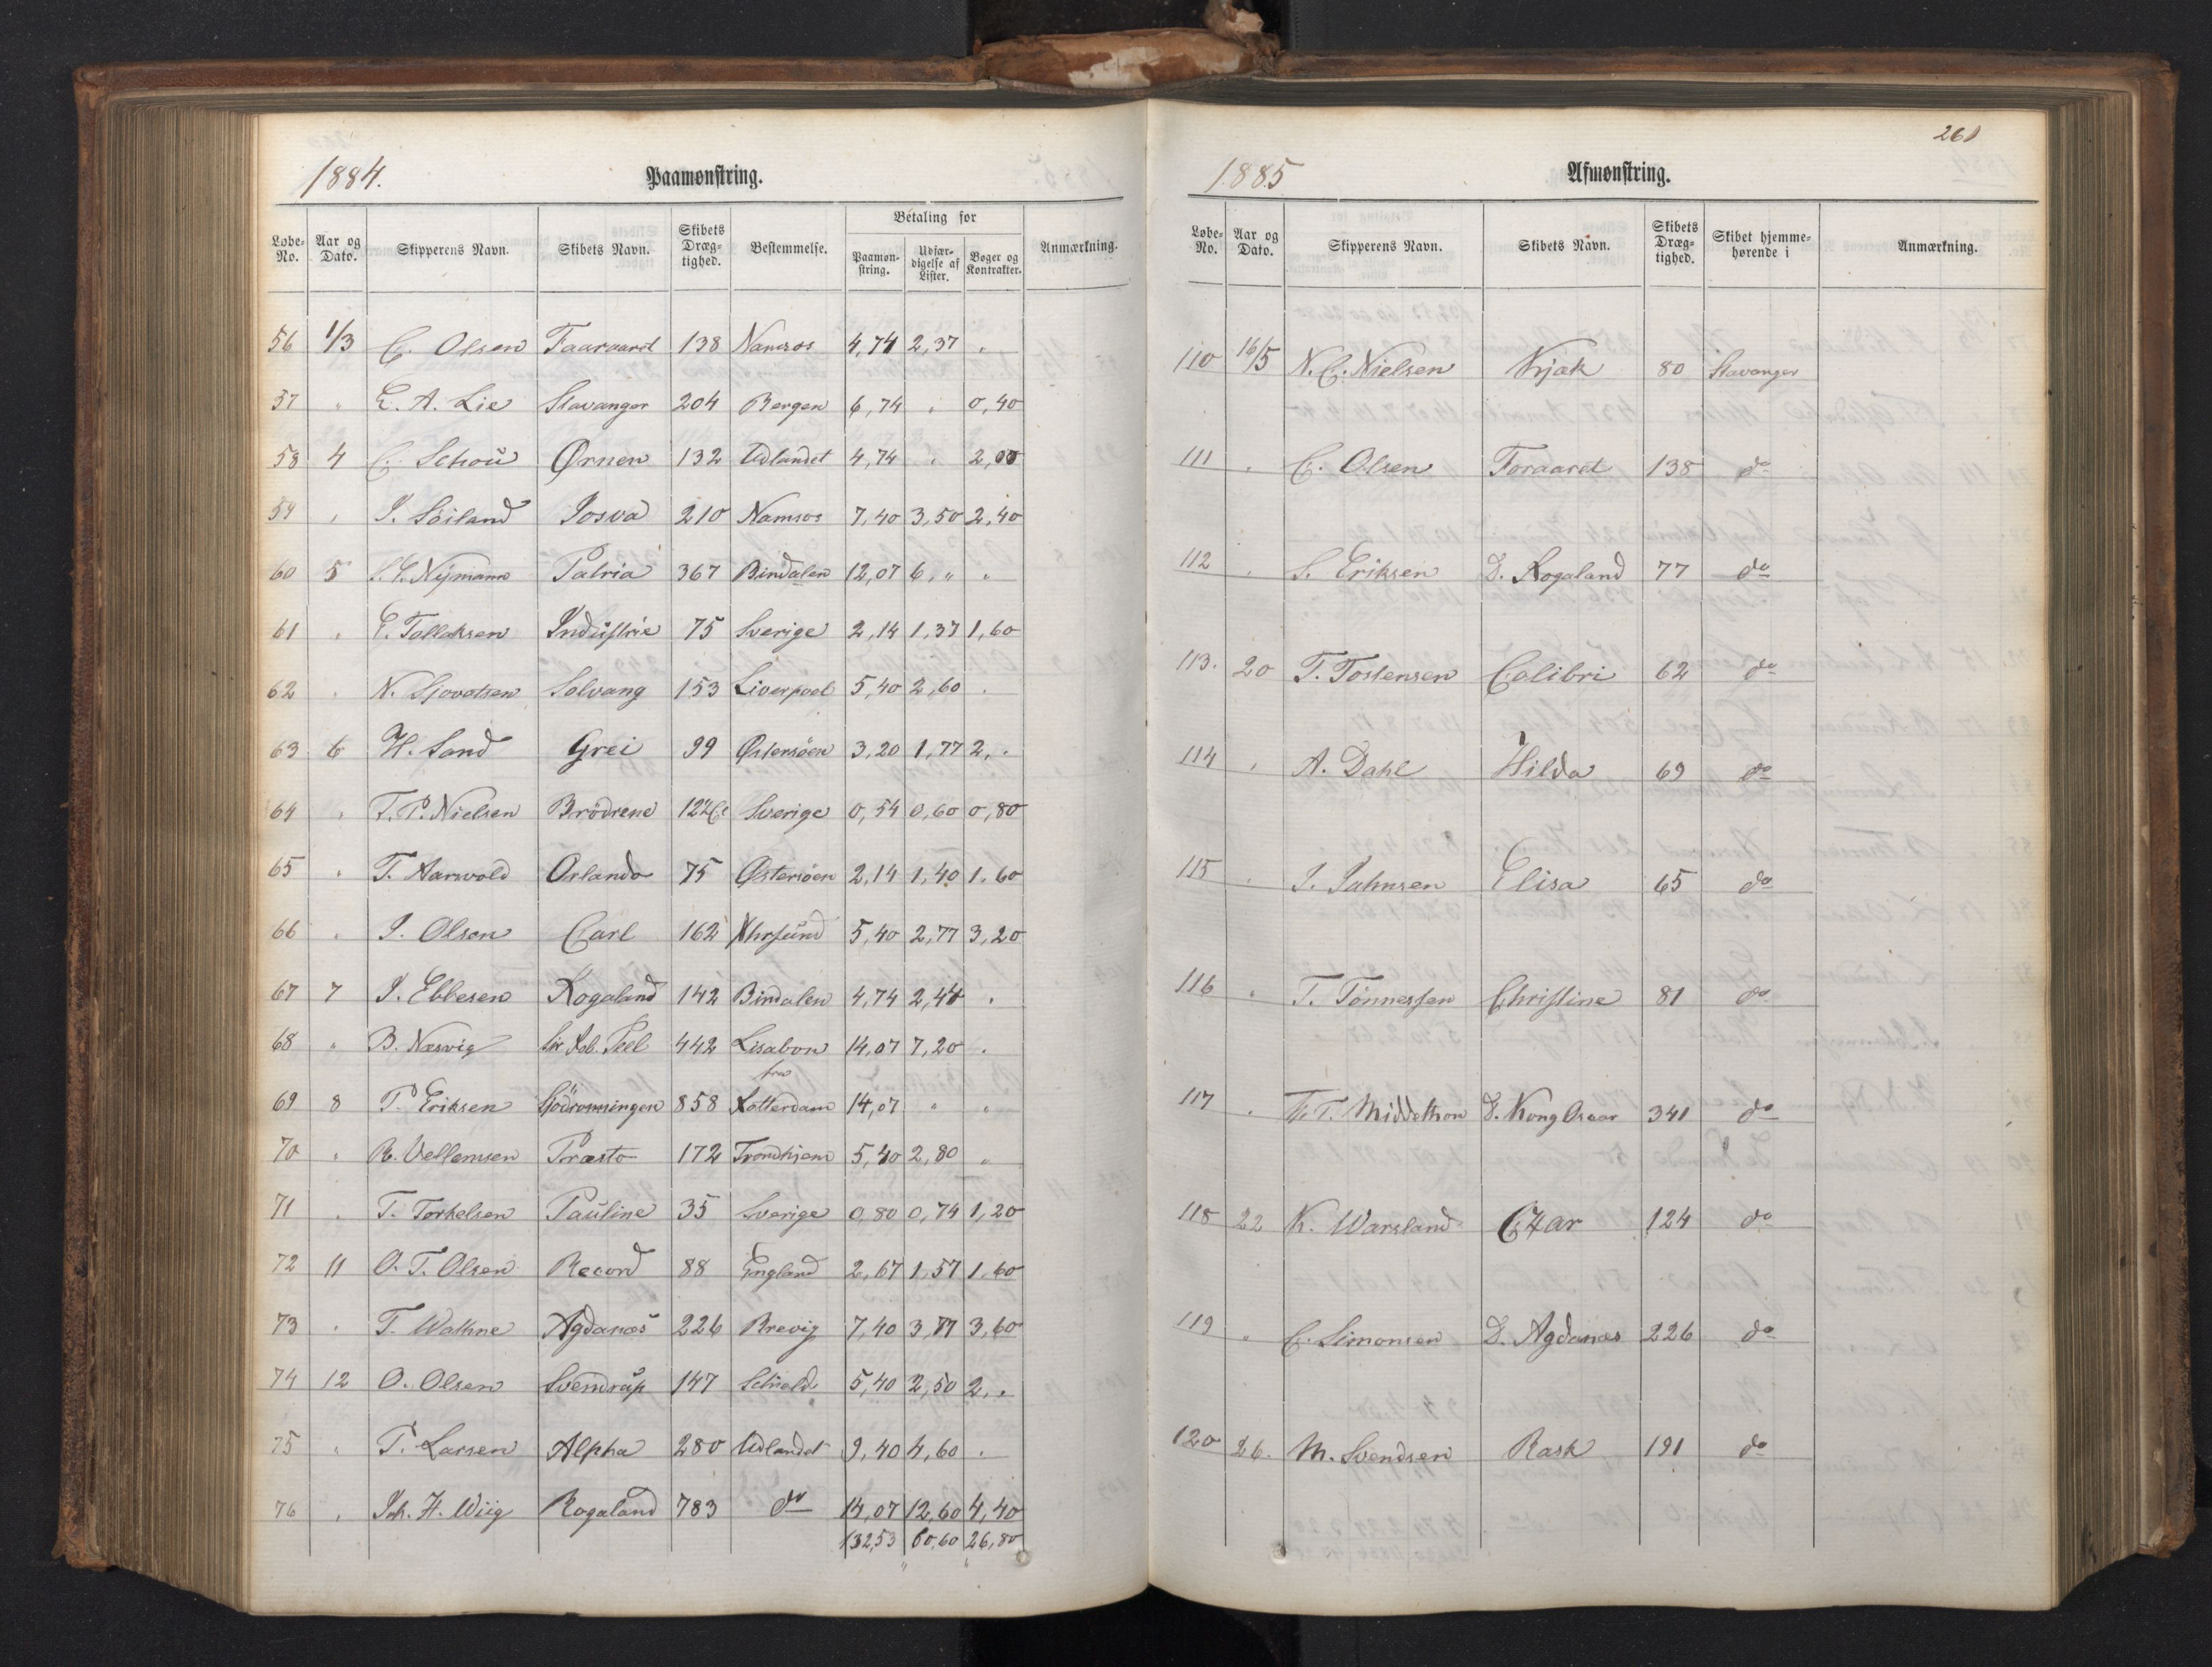 1884. Paamønstring.
Løbe-No. Aar og Dato. Skipperens Navn. Skibets Navn. Skibets Dræg-tighed. Bestemmelse. Betaling for Paamøn-string. Udfær-digelse af Lister. Bøger og Kontrakter. Anmærkning.
56 1/3 C. Olsen Faaraaret 138 Namsos 4,74 2,37 .
57 " E. A. Lie Stavanger 204 Bergen 6,74 " 0,40
58 4 C. Schou Ørnen 132 Udlandet 4,74 " 2,00
59 " I. Söiland Josva 210 Namsos 7,40 3,50 2,40
60 5 Nymann Patria 367 Bindalen 12,07 6, " "
61 " E. Tollaksen Industrie 75 Sverige 2,14 1,37 1,60
62 " N. Sjovotsen Solvang 153 Liverpool 5,40 2,60 .
63 6 H. Sand Grei 99 Østersöen 3,20 1,77 2, .
64 " T. P. Nielsen Brödrene 12 Sverige 0,54 0,60 0,80
65 " T. Aarvold Orlando 75 Østersöen 2,14 1,40 1,60
66 " I. Olsen Carl 162 Xhrsund 5,40 2,77 3,20
67 7 I. Ebbesen Rogaland 142 Bindalen 4,74 2,44 .
68 " B. Næsvig Sir Rob. Peel 442 Lisabon 14,07 7,20 .
69 8 P. Eriksen Sjödronningen 858 fra Rotterdam 14,07 " "
70 " R. Vellemsen Præsto 172 Trondhjem 5,40 2,80 "
71 " T. Torkelsen Pauline 35 Sverige 0,80 0,74 1,20
72 11 O. T. Olsen Record 88 England 2,67 1,57 1,60
73 " T. Wathne Agdanæs 226 Brevig 7,40 3,77 3,60
74 12 O. Olsen Svendrup 147 Schield 5,40 2,50 2, .
75 " P. Larsen Alpha 280 Udlandet 9,40 4,60 .
76 " Joh. H. Wiig Rogaland 783 do 14,07 12,60 4,40
132,53 60,60 26,80
261
1885 Afmønstring.
Løbe-No. Aar og Dato. Skipperens Navn. Skibets Navn. Skibets Dræg-tighed. Skibet hjemme-hørende i Anmærkning.
110 16/5 N. C. Nielsen Krjak 80 Stavanger
111 " C. Olsen Foraaret 138 do
112 " S. Eriksen D. Rogaland 77 do
113. 20 T. Tostensen Colibri 62 do
114 " A. Dahl Hilda 69 do
115 " I. Jahnsen Elisa 65 do
116 " T. Tönnessen Christine 81 do
117 " T. Middelthon D. Kong Oscar 341 do
118 22 K. Warsland Czar 124 do
119 " C. Simonsen D. Agdanæs 226 do
120 26. M. Svendsen Rask 191 do